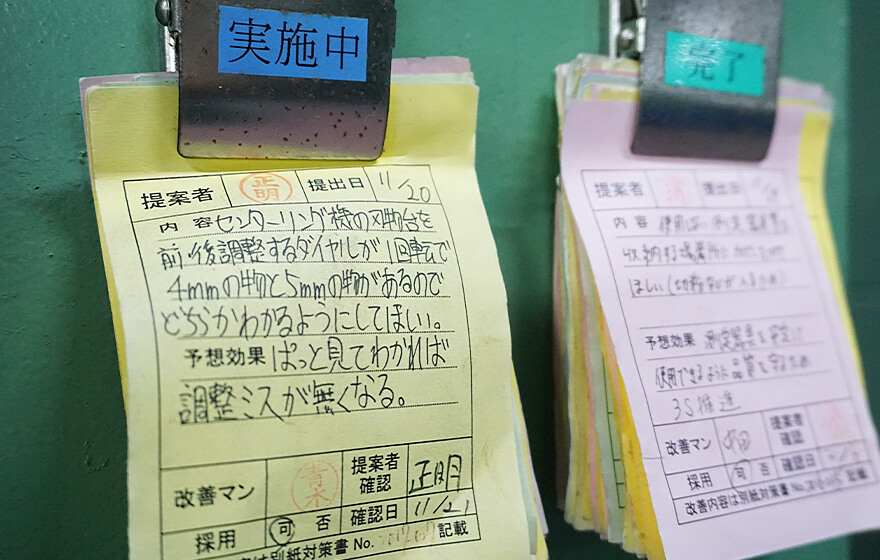 実施中
提案者 正明 提出日 11/20
内容 センターリング機の刃物台を
前後調整するダイヤルが1回転で
4mmの物と5mmの物があるので
どちらかわかるようにしてほしい。
予想効果 ぱっと見てわかれば
調整ミスが無くなる。
改善マン 青木 提案者確認 正明
採用 可 否 確認日 11/21
は別紙対策書No. 記載
完了
提案者 提出日
内容 使用
収納する場所
ほしい
予想効果 測定器具を
使用できるように品質を守るため
3S推進
改善マン 提案者確認
採用 可 否 確認日
改善内容は別紙対策書No. 記載